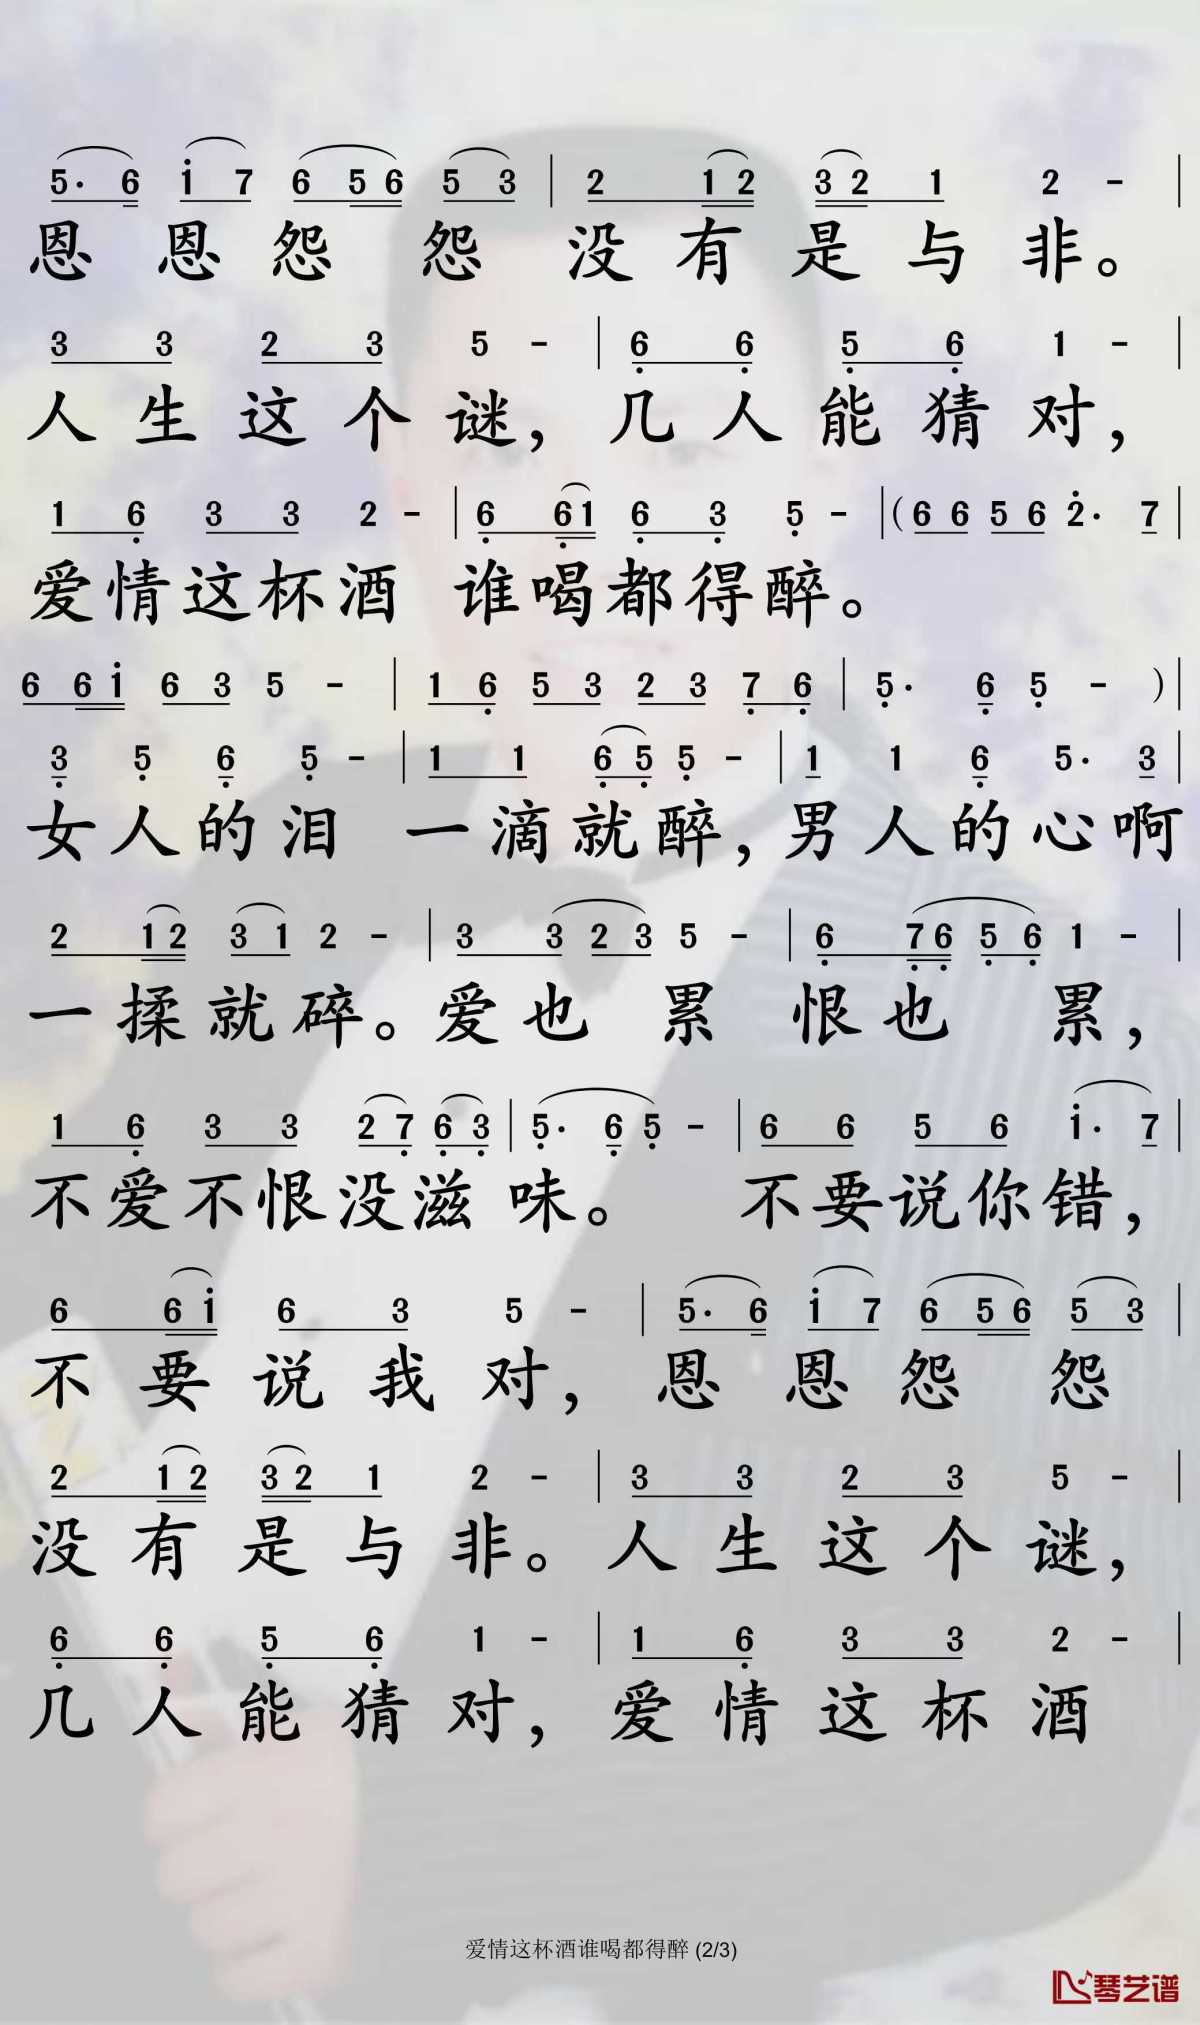 5· 6 1 7 6 5 6 5 3 | 2 1 2 3 2 1 2 - |
恩恩怨怨 没有是与非。
3 3 2 3 5 - | 6 6 5 6 1 - |
人生这个谜，几人能猜对，
1 6 3 3 2 - | 6 6 1 6 3 5 - | ( 6 6 5 6 2· 7 |
爱情这杯酒 谁喝都得醉。
6 6 1 6 3 5 - | 1 6 5 3 2 3 7 6 | 5· 6 5 - ) |
3 5 6 5 - | 1 1 6 5 5 - | 1 1 6 5· 3 |
女人的泪 一滴就醉，男人的心啊
2 1 2 3 1 2 - | 3 3 2 3 5 - | 6 7 6 5 6 1 - |
一揉就碎。爱也累 恨也累，
1 6 3 3 2 7 6 3 | 5· 6 5 - | 6 6 5 6 1· 7 |
不爱不恨没滋味。 不要说你错，
6 6 1 6 3 5 - | 5· 6 1 7 6 5 6 5 3 |
不要说我对，恩恩怨怨
2 1 2 3 2 1 2 - | 3 3 2 3 5 - |
没有是与非。人生这个谜，
6 6 5 6 1 - | 1 6 3 3 2 - |
几人能猜对，爱情这杯酒
爱情这杯酒谁喝都得醉 (2/3)
琴艺谱